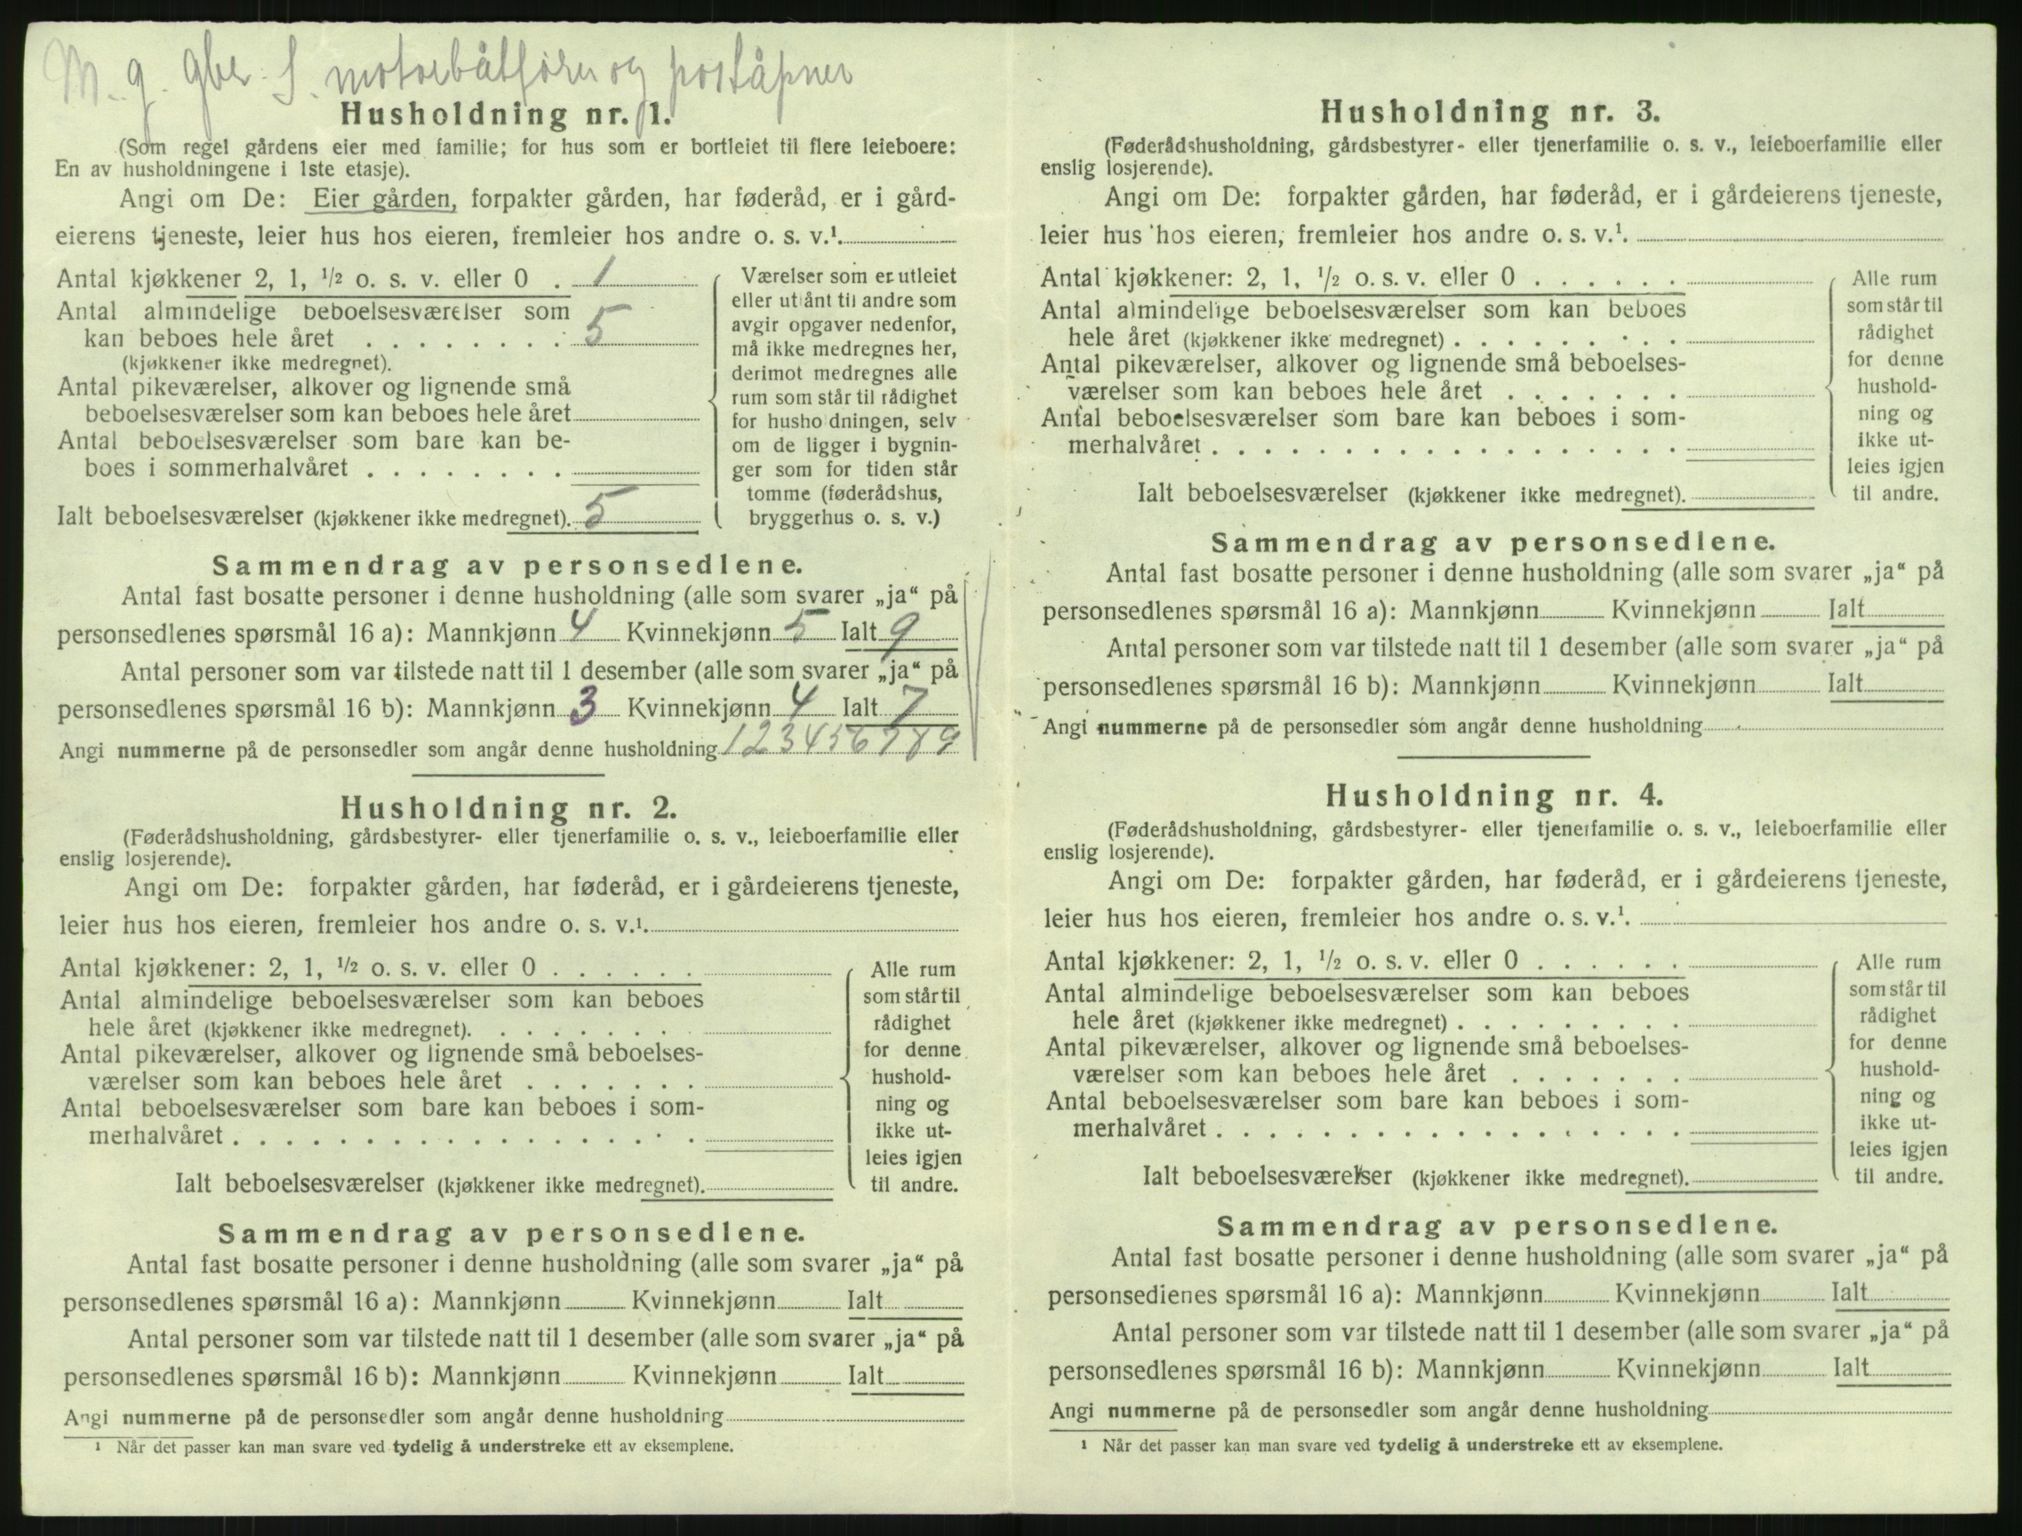 M. g. gbr. S. motorbåtfører og poståpner
Husholdning nr. 1.
(Som regel gårdens eier med familie; for hus som er bortleiet til flere leieboere:
En av husholdningene i 1ste etasje).
Angi om De: Eier gården, forpakter gården, har føderåd, er i gård-
eierens tjeneste, leier hus hos eieren, fremleier hos andre o. s. v.¹.
Antal kjøkkener 2, 1, ½ o. s. v. eller 0 . 1
Antal almindelige beboelsesværelser som
kan beboes hele året . . . . . . . . 5
(kjøkkener ikke medregnet).
Antal pikeværelser, alkover og lignende små
beboelsesværelser som kan beboes hele året
Antal beboelsesværelser som bare kan be-
boes i sommerhalvåret . . . . . . . .
Ialt beboelsesværelser (kjøkkener ikke medregnet). 5
Værelser som er utleiet
eller utlånt til andre som
avgir opgaver nedenfor,
må ikke medregnes her,
derimot medregnes alle
rum som står til rådighet
for husholdningen, selv
om de ligger i bygnin-
ger som for tiden står
tomme (føderådshus,
bryggerhus o. s. v.)
Sammendrag av personsedlene.
Antal fast bosatte personer i denne husholdning (alle som svarer „ja“ på
personsedlenes spørsmål 16 a): Mannkjønn 4 Kvinnekjønn 5 Ialt 9
Antal personer som var tilstede natt til 1 desember (alle som svarer „ja“ på
personsedlenes spørsmål 16 b): Mannkjønn 3 Kvinnekjønn 4 Ialt 7
Angi nummerne på de personsedler som angår denne husholdning 1 2 3 4 5 6 7 8 9
Husholdning nr. 2.
(Føderådshusholdning, gårdsbestyrer- eller tjenerfamilie o. s. v., leieboerfamilie eller
enslig losjerende).
Angi om De: forpakter gården, har føderåd, er i gårdeierens tjeneste,
leier hus hos eieren, fremleier hos andre o. s. v.¹.
Antal kjøkkener: 2, 1, ½ o. s. v. eller 0 . . . . . .
Antal almindelige beboelsesværelser som kan beboes
hele året (kjøkkener ikke medregnet). . . . . . . . .
Antal pikeværelser, alkover og lignende små beboelses-
værelser som kan beboes hele året . . . . . . .
Antal beboelsesværelser som bare kan beboes i som-
merhalvåret . . . . . . . . . . . . . . . . . .
Ialt beboelsesværelser (kjøkkener ikke medregnet).
Alle rum
som står til
rådighet
for denne
hushold-
ning og
ikke ut-
leies igjen
til andre.
Sammendrag av personsedlene.
Antal fast bosatte personer i denne husholdning (alle som svarer „ja“ på
personsedlenes spørsmål 16 a): Mannkjønn Kvinnekjønn Ialt
Antal personer som var tilstede natt til 1 desember (alle som svarer „ja“ på
personsedlenes spørsmål 16 b): Mannkjønn Kvinnekjønn Ialt
Angi nummerne på de personsedler som angår denne husholdning
¹ Når det passer kan man svare ved tydelig å understreke ett av eksemplene.
Husholdning nr. 3.
(Føderådshusholdning, gårdsbestyrer- eller tjenerfamilie o. s. v., leieboerfamilie eller
enslig losjerende).
Angi om De: forpakter gården, har føderåd, er i gårdeierens tjeneste,
leier hus hos eieren, fremleier hos andre o. s. v.¹.
Antal kjøkkener: 2, 1, ½ o. s. v. eller 0 . . . . . .
Antal almindelige beboelsesværelser som kan beboes
hele året (kjøkkener ikke medregnet) . . . . . . . . .
Antal pikeværelser, alkover og lignende små beboelses-
værelser som kan beboes hele året . . . . . . .
Antal beboelsesværelser som bare kan beboes i som-
merhalvåret . . . . . . . . . . . . . . . . . .
Ialt beboelsesværelser (kjøkkener ikke medregnet).
Alle rum
som står til
rådighet
for denne
hushold-
ning og
ikke ut-
leies igjen
til andre.
Sammendrag av personsedlene.
Antal fast bosatte personer i denne husholdning (alle som svarer „ja“ på
personsedlenes spørsmål 16 a): Mannkjønn Kvinnekjønn Ialt
Antal personer som var tilstede natt til 1 desember (alle som svarer „ja“ på
personsedlenes spørsmål 16 b): Mannkjønn Kvinnekjønn Ialt
Angi nummerne på de personsedler som angår denne husholdning
Husholdning nr. 4.
(Føderådshusholdning, gårdsbestyrer- eller tjenerfamilie o. s. v., leieboerfamilie eller
enslig losjerende).
Angi om De: forpakter gården, har føderåd, er i gårdeierens tjeneste,
leier hus hos eieren, fremleier hos andre o. s. v.¹.
Antal kjøkkener: 2, 1, ½ o. s. v. eller 0 . . . . . .
Antal almindelige beboelsesværelser som kan beboes
hele året (kjøkkener ikke medregnet) . . . . . . . . .
Antal pikeværelser, alkover og lignende små beboelses-
værelser som kan beboes hele året . . . . . . .
Antal beboelsesværelser som bare kan beboes i som-
merhalvåret . . . . . . . . . . . . . . . . . .
Ialt beboelsesværelser (kjøkkener ikke medregnet).
Alle rum
som står til
rådighet
for denne
hushold-
ning og
ikke ut-
leies igjen
til andre.
Sammendrag av personsedlene.
Antal fast bosatte personer i denne husholdning (alle som svarer „ja“ på
personsedlenes spørsmål 16 a): Mannkjønn Kvinnekjønn Ialt
Antal personer som var tilstede natt til 1 desember (alle som svarer „ja“ på
personsedlenes spørsmål 16 b): Mannkjønn Kvinnekjønn Ialt
Angi nummerne på de personsedler som angår denne husholdning
¹ Når det passer kan man svare ved tydelig å understreke ett av eksemplene.